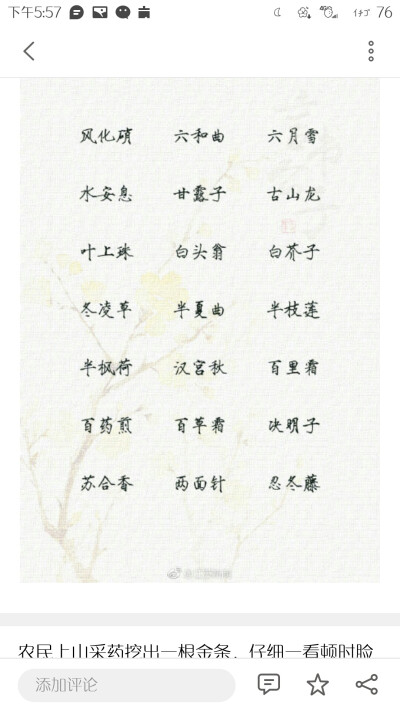 下午5:57
76
风化硝 六和曲 六月雪
水安息 甘露子 古山龙
叶上珠 白头翁 白芥子
冬凌草 半夏曲 半枝莲
半枫荷 汉宫秋 百里霜
百药煎 百草霜 决明子
苏合香 两面针 忍冬藤
农民上山采药挖出一根金条,仔细一看顿时脸
添加评论